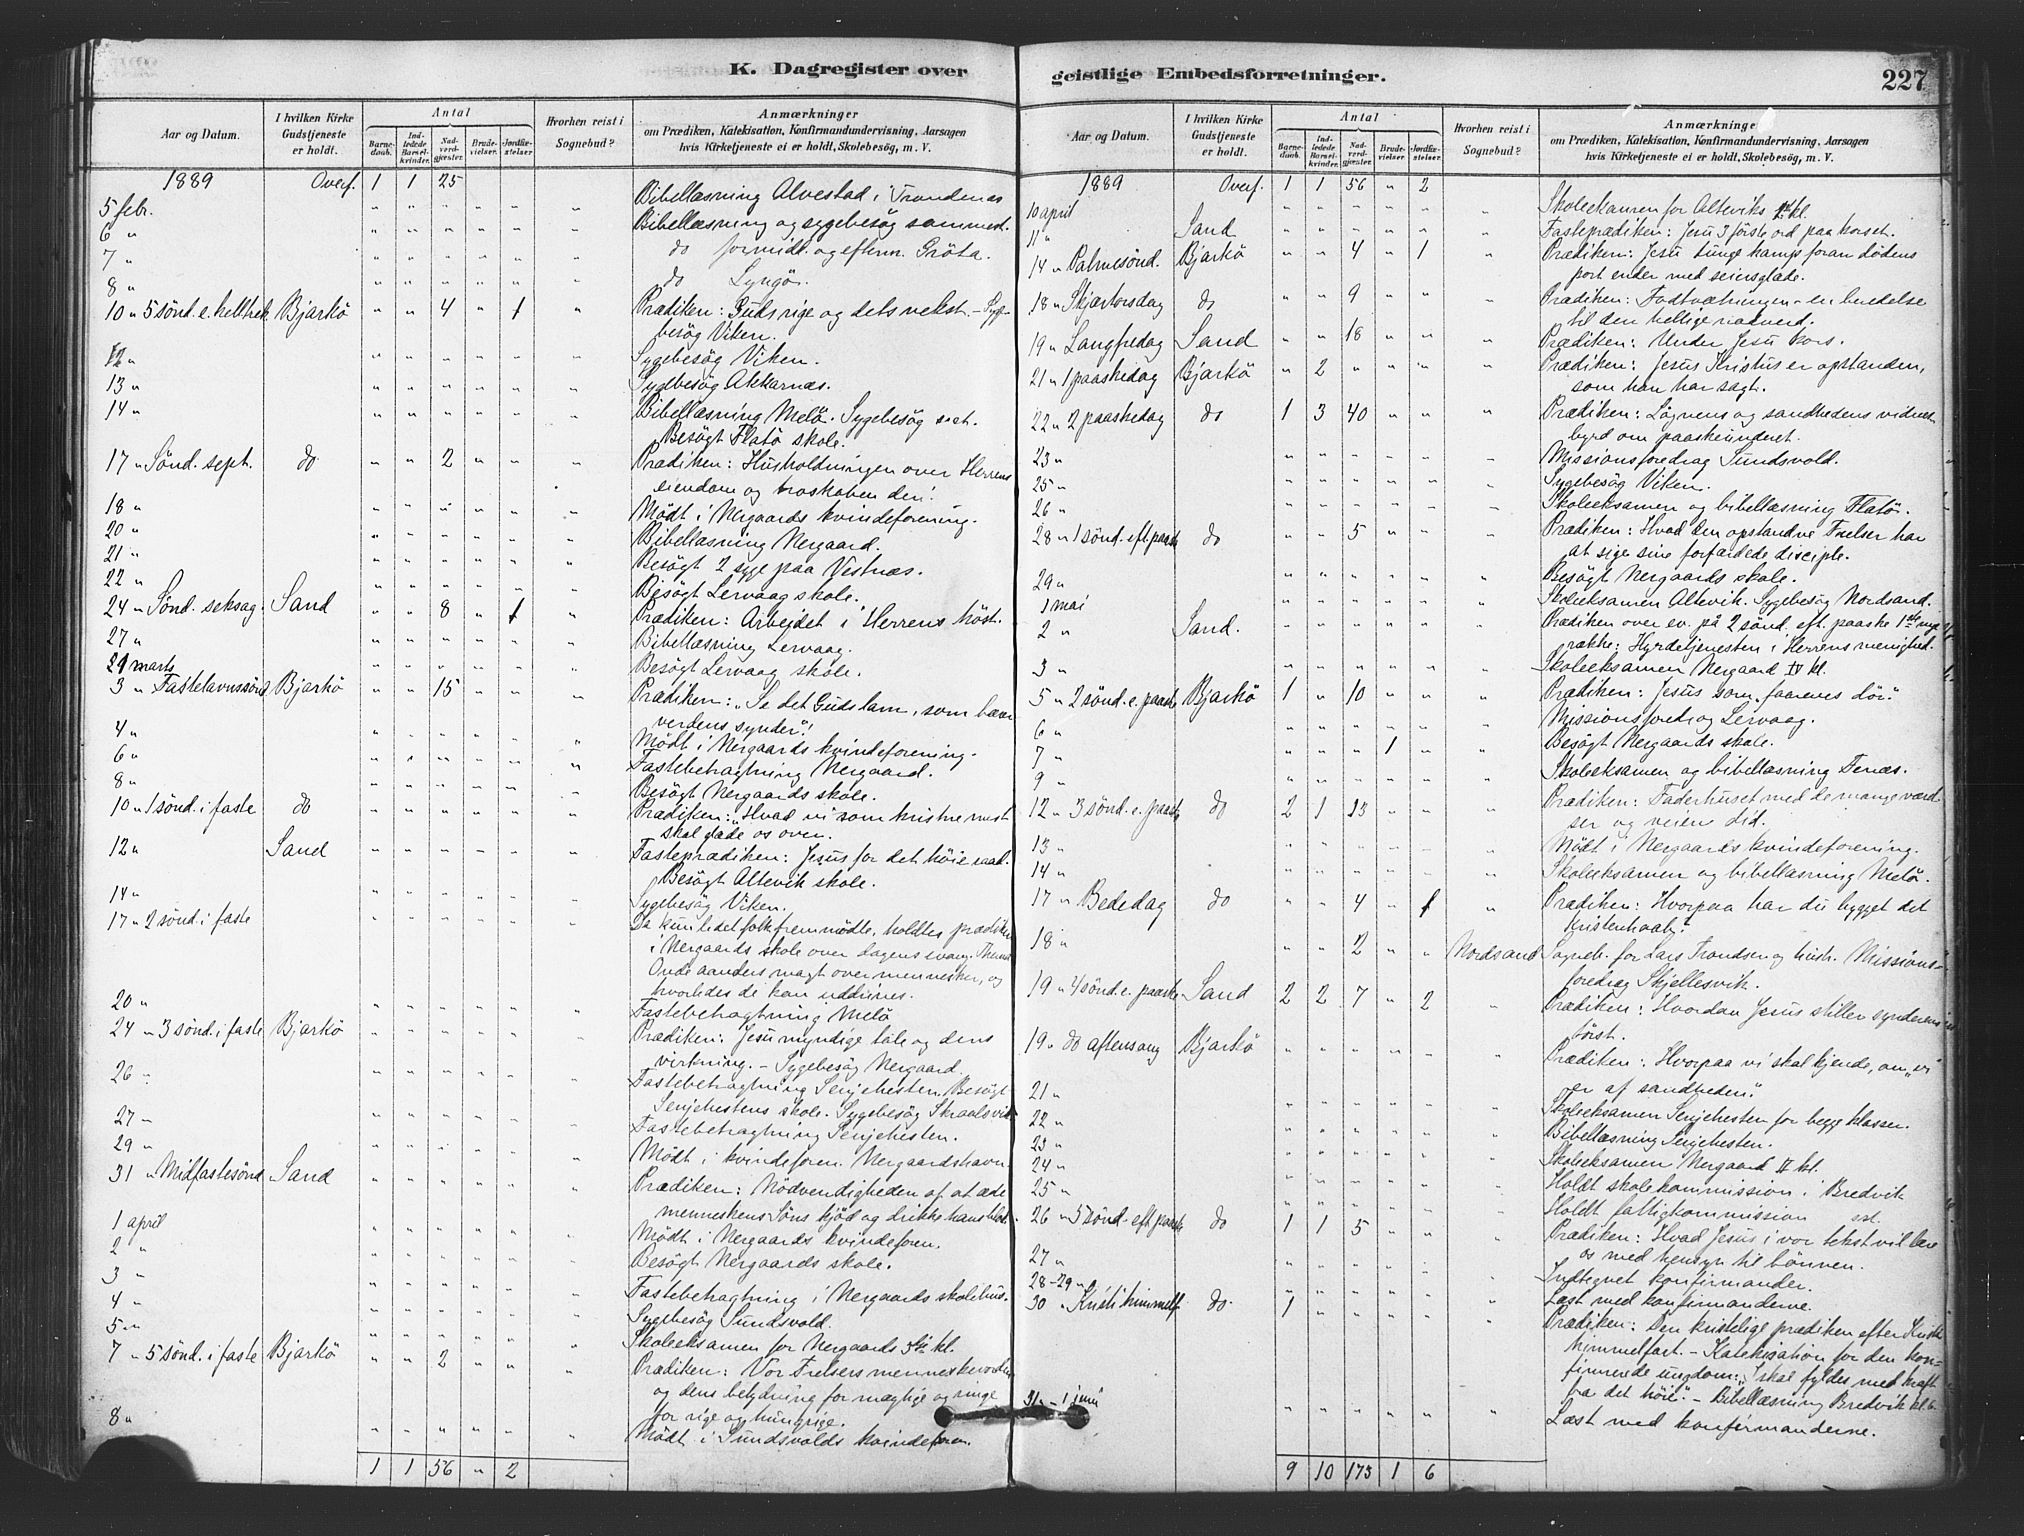 K. Dagregister over
Aar og Datum.
I hvilken Kirke Gudstjeneste er holdt.
Antal
Barnedaab.
Indledede Barselkvinder.
Nadverdgjæster.
Brudevielser.
Jordfæstelser
Hvorhen reist i Sognebud?
Anmærkninger
om Prædiken, Katekisation, Konfirmandundervisning, Aarsagen
hvis Kirketjeneste ei er holdt, Skolebesøg, m. V.
1889 Overf. 1 1 25
5 febr. " " " " " " Bibellæsning Alvestad i Trondenæs
6 " " " " " " " Bibellæsning og sygebesøg sammest.
7 " " " " " " " do formidt. og efterm. Gröta.
8 " " " " " " " do Lyngö.
10 " 5 sönd. e. helltrek. Bjarkö " " 4 " 1 " Prædiken: Guds rige og dets vekst. - Syge-
besög Viken.
12 " " " " " " " Sygebesög Viken.
13 " " " " " " " Sygebesög Akkarnæs.
14 " " " " " " " Bibellæsning Melö. Sygebesög sst.
Besögt Flatö skole.
17 " Sönd. sept. do " " 2 " " " Prædiken: Husholdningen over Herrens
eiendom og troskaben deri.
18 " " " " " " " Mödt i Nergaards kvindeforening.
20 " " " " " " " Bibellæsning Nergaard.
21 " " " " " " " Besögt 2 syge paa Vestnæs.
22 " " " " " " " Besögt Lervaag skole.
24 " Sönd. seksag. Sand " " 8 " 1 " Prædiken: Arbejdet i Herrens höst.
27 " " " " " " " Bibellæsning Lervaag.
1 marts " " " " " " Besögt Lervaag skole.
3 " Fastelavnssönd. Bjarkö " " 15 " " " Prædiken: "Se det Guds lam, som bær
verdens synder"!
4 " " " " " " " Mödt i Nergaards kvindeforening.
6 " " " " " " " Fastebetragtning Nergaard.
8 " " " " " " " Besögt Nergaards skole.
10 " 1 sönd. i faste do " " " " " " Prædiken: "Hvad vi som kristne mest
skal glæde os over.
12 " Sand " " " " " " Fasteprædiken: Jesus for det höie raad.
Besögt Altevik skole.
14 " " " " " " " Sygebesög Viken.
17 " 2 sönd. i faste " " " " " " Da kun lidet folk fremmödte, holdtes prædiken
i Nergaards skole over dagens evang. Thema:
Onde aanders magt over mennesker, og
hvorledes de kan uddrives.
20 " " " " " " " Fastebetragtning Melö
24 " 3 sönd. i faste Bjarkö " " " " " " Prædiken: Jesu myndige tale og dens
virkning. - Sygebesög Nergaard.
26 " " " " " " " Fastebetragtning Senjehesten. Besögt
Senjehestens skole. Sygebesög Skraalsvik.
27 " " " " " " " Fastebetragtning Senjehesten.
29 " " " " " " " Mödt i kvindeforen. Nergaardshavn.
31 " Midfastesönd. Sand " " " " " " Prædiken: Nödvendigheden af at æde
menneskens Söns kjöd og drikke hans blod.
1 april " " " " " " Mödt i Nergaards kvindeforen.
2 " " " " " " " Besögt Nergaards skole.
3 " " " " " " " Fastebetragtning i Nergaards skolehus.
4 " " " " " " " Sygebesög Sundsvold.
5 " " " " " " " Skoleeksamen for Nergaards 3die kl.
7 " 5 sönd. i faste Bjarkö " " 2 " " " Prædiken: Vor Frelsers menneskevorden
og dens betydning for mægtige og ringe
for rige og hungrige.
8 " " " " " " " Mödt i Sundsvolds kvindeforen.
1 1 56 " 2
geistlige Embedsforretninger.
227
Aar og Datum.
I hvilken Kirke Gudstjeneste er holdt.
Antal
Barnedaab.
Indledede Barselkvinder.
Nadverdgjæster.
Brudevielser.
Jordfæstelser.
Hvorhen reist i Sognebud?
Anmærkninge
om Prædiken, Katekisation, Konfirmandundervisning, Aarsagen
hvis Kirketjeneste ei er holdt, Skolebesøg, m. V.
1889 Overf. 1 1 56 " 2
10 april " " " " " " Skoleeksamen for Alteviks kl.
11 " Sand " " " " " " Fasteprædiken: Jesu 3 förste ord paa korset.
14 " Palmesönd. Bjarkö " " 4 " 1 " Prædiken: Jesu tunge kamp foran dödens
port ender med seiersglæde.
18 " Skjærtorsdag do " " 9 " " " Prædiken: Fodtvætningen - en beredelse
til den hellige nadverd.
19 " Langfredag Sand " " 18 " " " Prædiken: Under Jesu kors.
21 " 1 paaskedag Bjarkö " 2 " " " " Prædiken: Jesus Kristus er opstanden,
som han har sagt.
22 " 2 paaskedag do 1 3 40 " " " Prædiken: Lögnens og sandhedens vidnes-
byrd om paaskeunderet.
23 " " " " " " " Missionsforedrag Sundsvold.
25 " " " " " " " Sygebesög Viken.
26 " " " " " " " Skoleeksamen og bibellæsning Flatö.
28 " 1 sönd. eft. paaske do " " 5 " " " Prædiken: Hvad den opstandne Frelser har
at sige sine forfærdede disciple.
29 " " " " " " " Besögt Nergaards skole.
1 mai " " " " " " Skoleeksamen Altevik. Sygebesög Nordsand.
2 " Sand. " " " " " " Prædiken over ev. på 2 sönd. eft. paaske 1ste nye
række: Hyrdetjenesten i Herrens menighed.
3 " " " " " " " Skoleeksamen Nergaard IV kl.
5 " 2 sönd. e. paaske Bjarkö 1 " 10 " " " Prædiken: Jesus som "faarenes dör."
6 " " " " " " " Missionsforedrag Lervaag.
7 " " " " 1 " " Besögt Nergaards skole.
9 " " " " " " " Skoleeksamen og bibellæsning Fenæs.
12 " 3 sönd. e. paaske do 2 1 23 " " " Prædiken: Faderhuset med de mange værel-
ser og veien did.
13 " " " " " " " Mödt i Nergaards kvindeforening.
14 " " " " " " " Skoleeksamen og bibellæsning Melö.
17 " Bededag do " " 4 " 1 " Prædiken: Hvorpaa har du bygget dit
kristenhaab?
18 " " " 2 " " Nordsand Sogneb. for Lars Trondsen og hust. Missions-
foredrag Skjellesvik.
19 " 4 sönd. e. paaske Sand 2 2 7 " 2 " Prædiken: Hvordan Jesus stiller synderens
törst.
19 " do aftensang Bjarkö " " " " " " Prædiken: Hvorpaa vi skal kjende, om "vi
er af sandheden".
21 " " " " " " " Skoleeksamen Senjehesten for begge klasser.
22 " " " " " " " Bibellæsning Senjehesten.
23 " " " " " " " Skoleeksamen Nergaard II kl.
24 " " " " " " " Holdt skolekommission i Bredvik
25 " " " " " " " Holdt fattigkommission sst.
26 " 5 sönd. eft. paaske do 1 1 5 " " " Prædiken: Hvad Jesus i vor tekst vil lære
os med hensyn til bönnen.
27 " " " " " " " Indtegnet konfirmander.
28-29 " " " " " " " Læst med konfirmanderne.
30 " Kristi himmelf. do 1 " " " " " Prædiken: Den kristelige prædiken efter Kristi
himmelfart. - Katekisation for den kon-
firmerede ungdom: "I skal fyldes med kraft
fra det höie". - Bibellæsning Bredvik kl. 6.
31 " - 1 juni " " " " " " Læst med konfirmanderne.
9 10 173 1 6